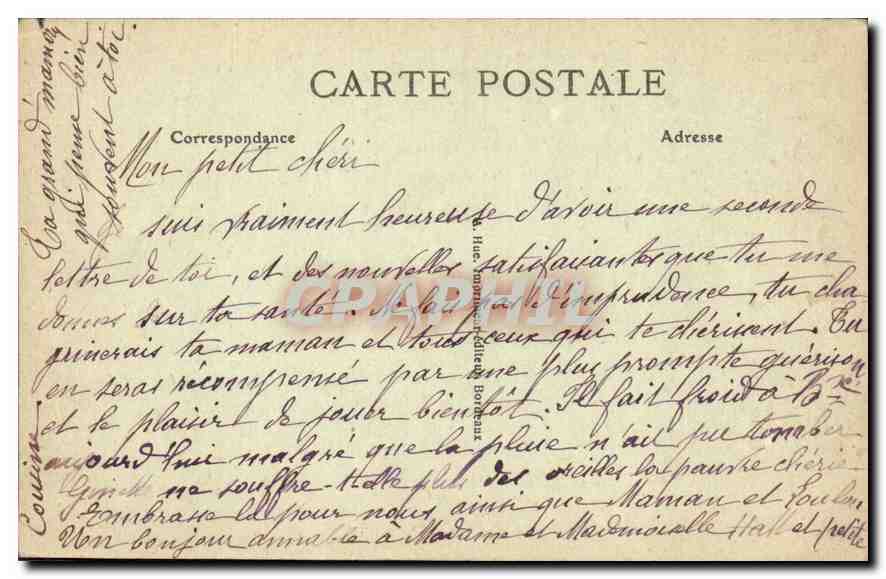 CARTE POSTALE
Correspondance
Adresse
Mon petit chéri
suis vraiment heureuse d'avoir une seconde
lettre de toi, et des nouvelles satisfaisantes que tu me
donnes sur ta santé. Ne fais pas d'imprudence, tu cha-
grinerais ta maman et tous ceux qui te chérissent. Tu
en seras récompensé par une plus prompte guérison
et le plaisir de jouer bientôt. Il fait froid à Bx
aujourd'hui malgré que la pluie n'ait pu tomber
Ginette ne souffre-t-elle plus des oreilles la pauvre chérie
Embrasse la pour nous ainsi que Maman et Loulou
Un bonjour aimable à Madame et Mademoiselle et petite
Cousine.
Ta grand'maman
qui pense bien
souvent à toi
Hue, Imprimeur-éditeur Bordeaux
CPAPHIL